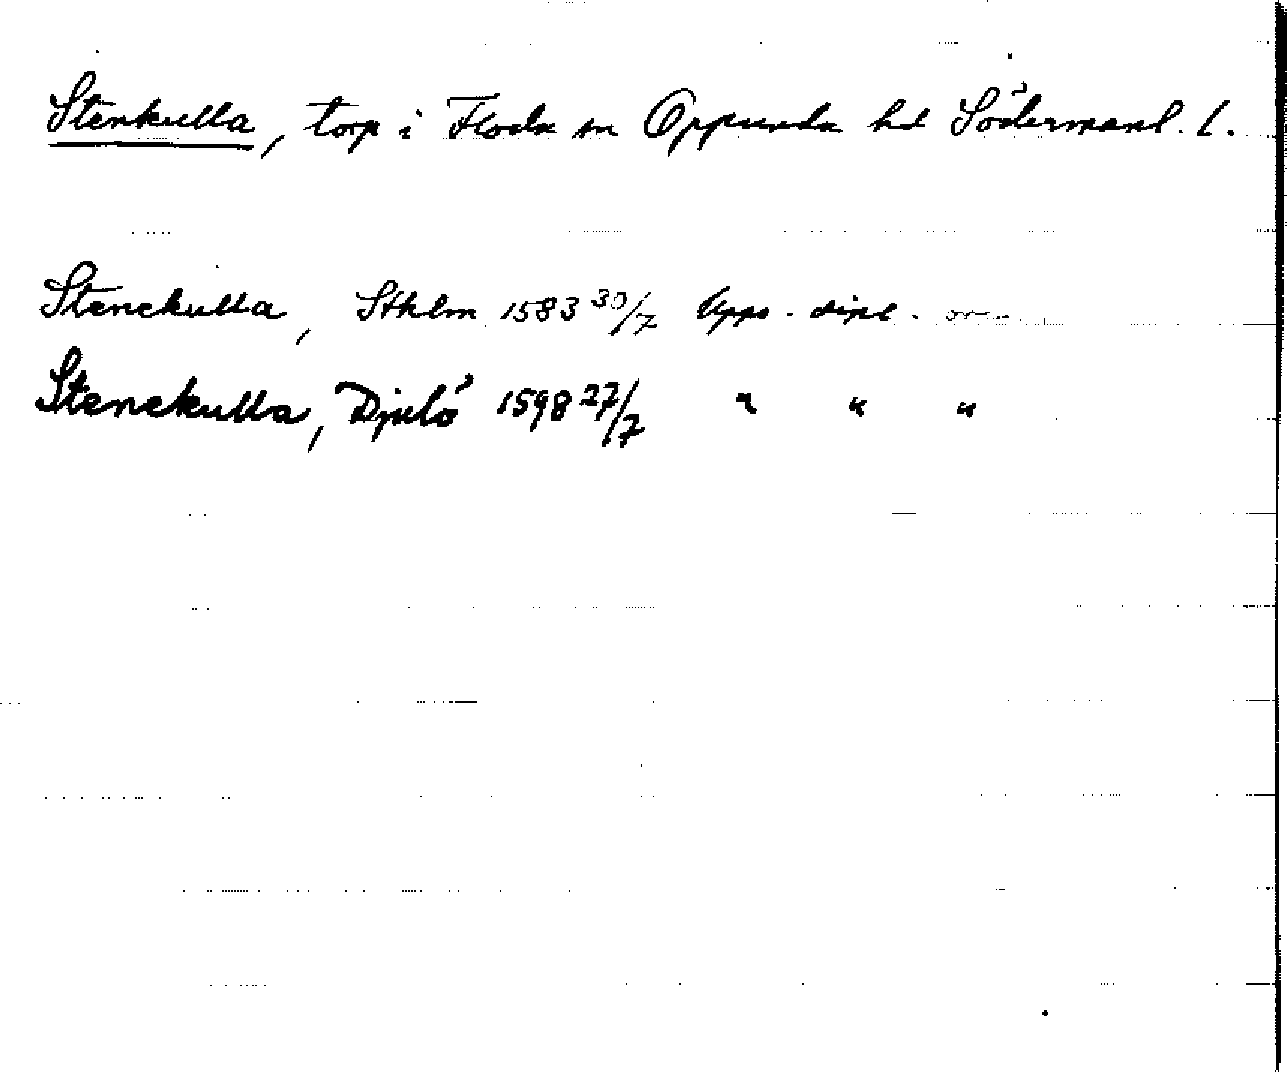 Stenkulla, torp i Floda sn Oppunda hd Södermanl. l.
Stenekulla, Sthlm 1583 30/7 Upps. dipl. or
Stenekulla, Djulö 1598 27/7 " " "